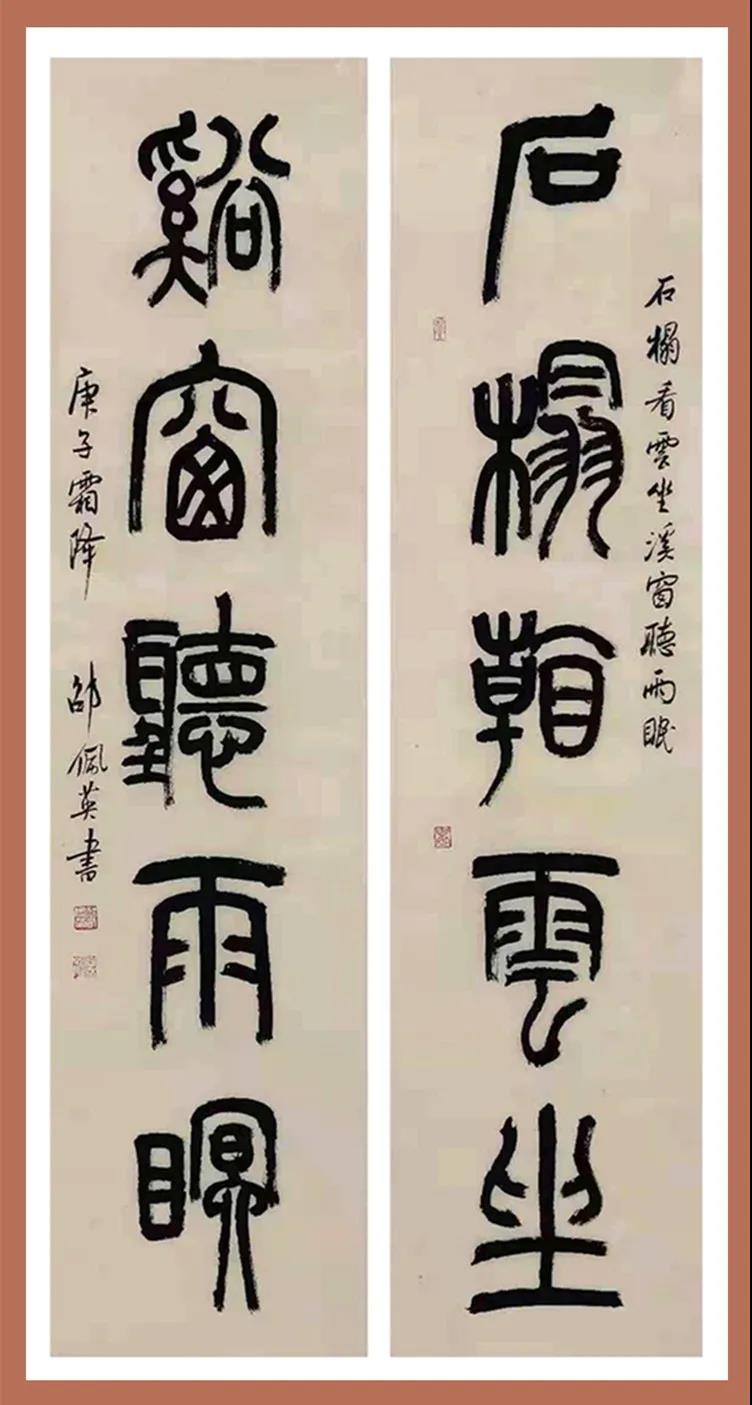 石榻看雲坐溪窗聽雨眠
石榻看雲坐
谿窗聽雨瞑
庚子霜降 邵佩英書